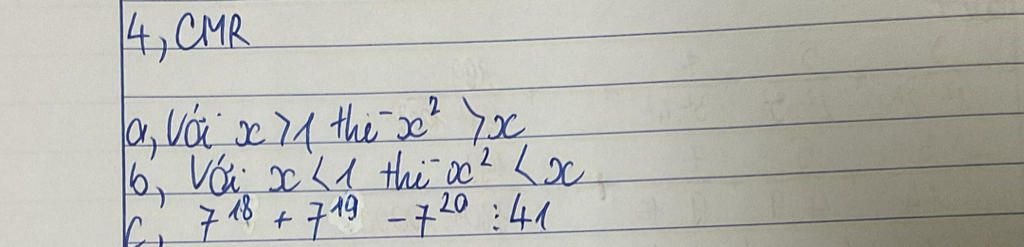 4, CMR
a, Với x > 1 thì x² > x
b, Với x < 1 thì x² < x
c, 7¹⁸ + 7¹⁹ - 7²⁰ ⋮ 41